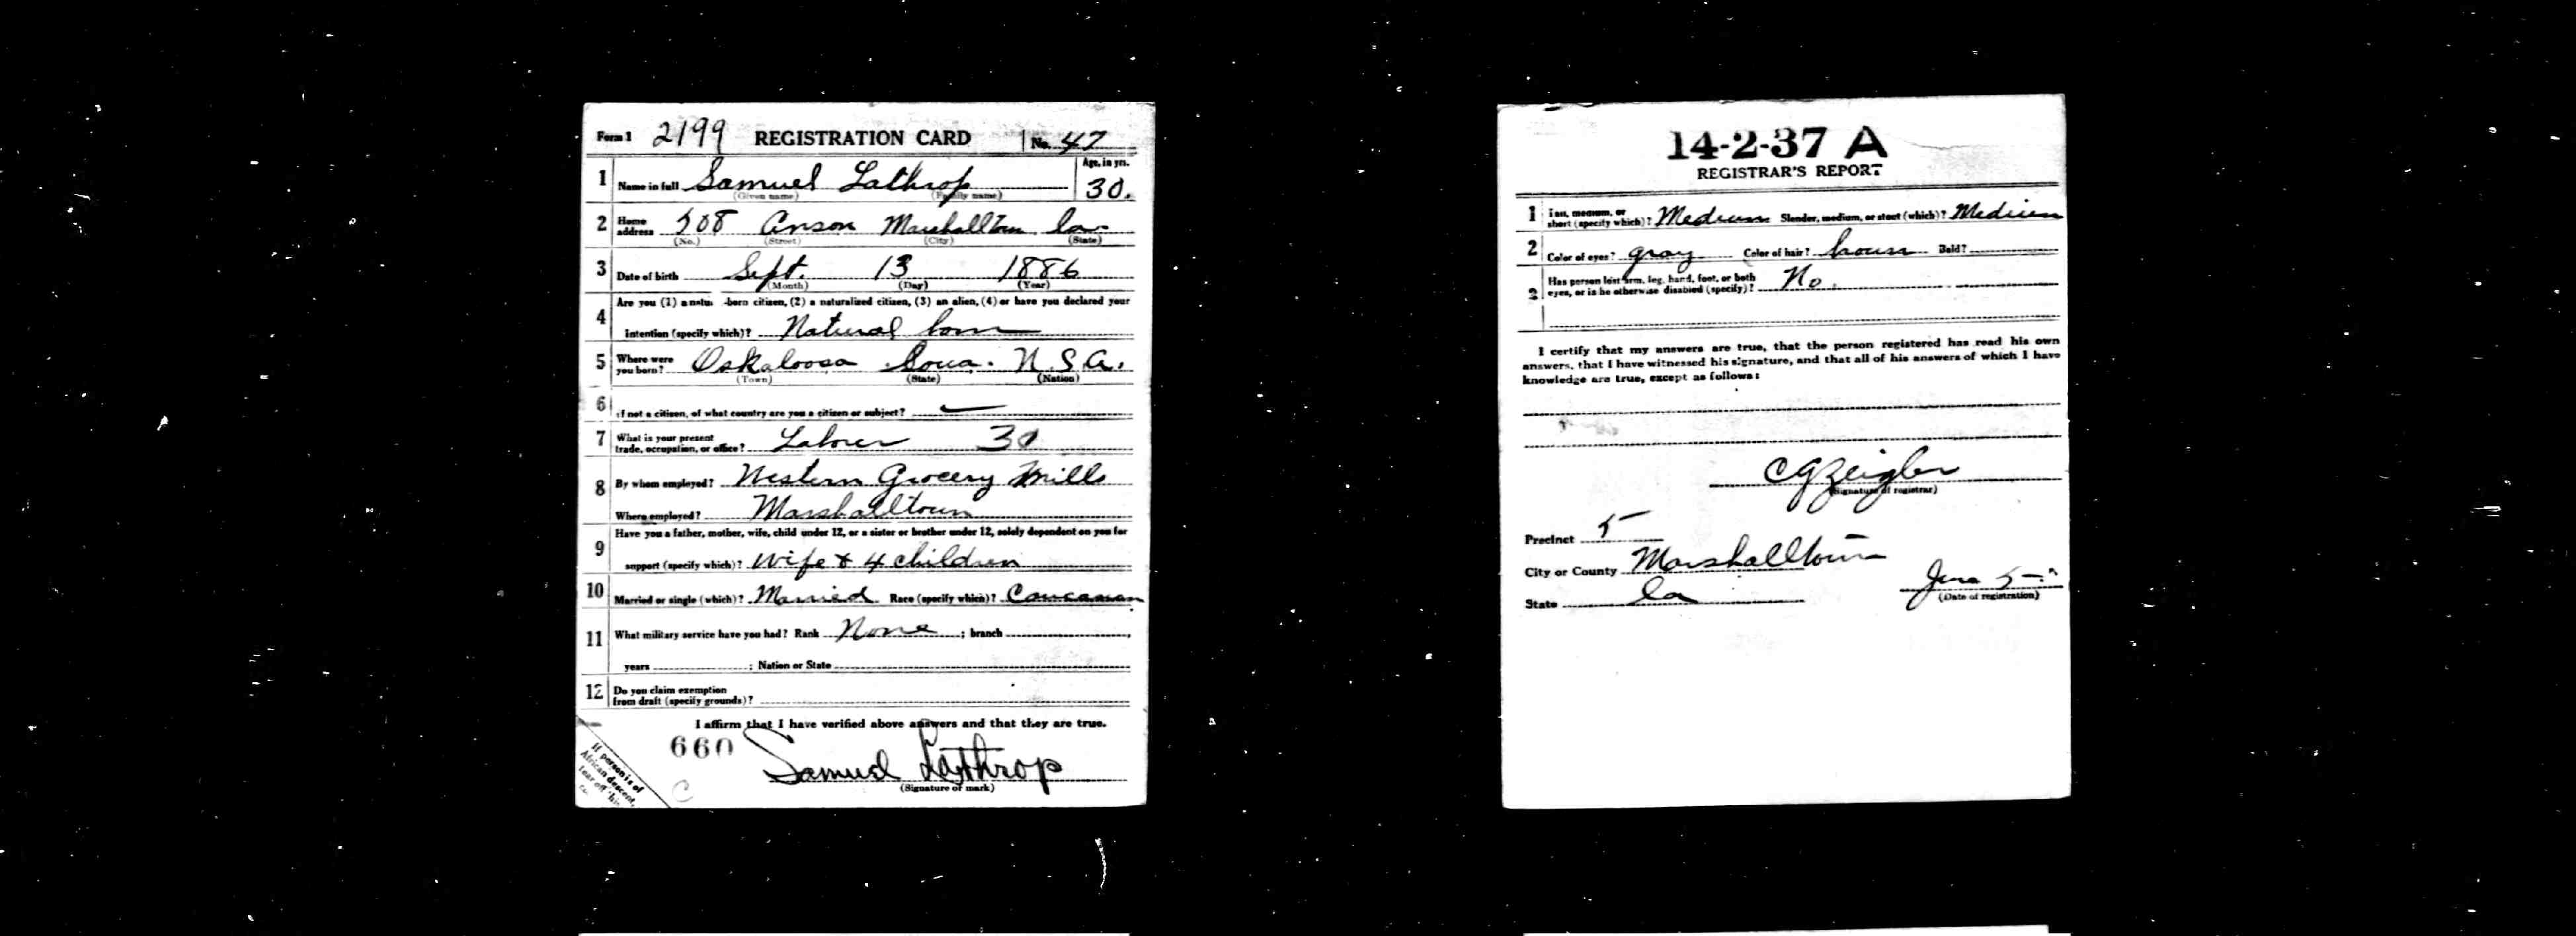 Form 1 2199 REGISTRATION CARD No. 47
1 Name in full Samuel Lathrop Age, in yrs. 30.
(Given name) (Family name)
2 Home address 508 Anson Marshalltown Ia.
(No.) (Street) (City) (State)
3 Date of birth Sept. 13 1886
(Month) (Day) (Year)
Are you (1) a natu -born citizen, (2) a naturalized citizen, (3) an alien, (4) or have you declared your
4 intention (specify which)? Natural born
5 Where were you born? Oskaloosa Iowa. U.S.A.
(Town) (State) (Nation)
6 If not a citizen, of what country are you a citizen or subject?
7 What is your present trade, occupation, or office? Laborer 30
8 By whom employed? Western Grocery Mills
Where employed? Marshalltown
Have you a father, mother, wife, child under 12, or a sister or brother under 12, solely dependent on you for
9 support (specify which)? Wife & 4 children
10 Married or single (which)? Married Race (specify which)? Caucasian
11 What military service have you had? Rank None ; branch
years ; Nation or State
12 Do you claim exemption
from draft (specify grounds)?
I affirm that I have verified above answers and that they are true.
660
Samuel Lathrop
(Signature or mark)
If person is of
African descent,
tear off
C
14-2-37 A
REGISTRAR'S REPORT
1 Tall, medium, or short (specify which)? Medium Slender, medium, or stout (which)? Medium
2 Color of eyes? gray Color of hair? brown Bald?
3 Has person lost arm, leg, hand, foot, or both
eyes, or is he otherwise disabled (specify)? No.
I certify that my answers are true, that the person registered has read his own
answers, that I have witnessed his signature, and that all of his answers of which I have
knowledge are true, except as follows:
C G Zeigler
(Signature of registrar)
Precinct 5
City or County Marshalltown
State Ia June 5
(Date of registration)